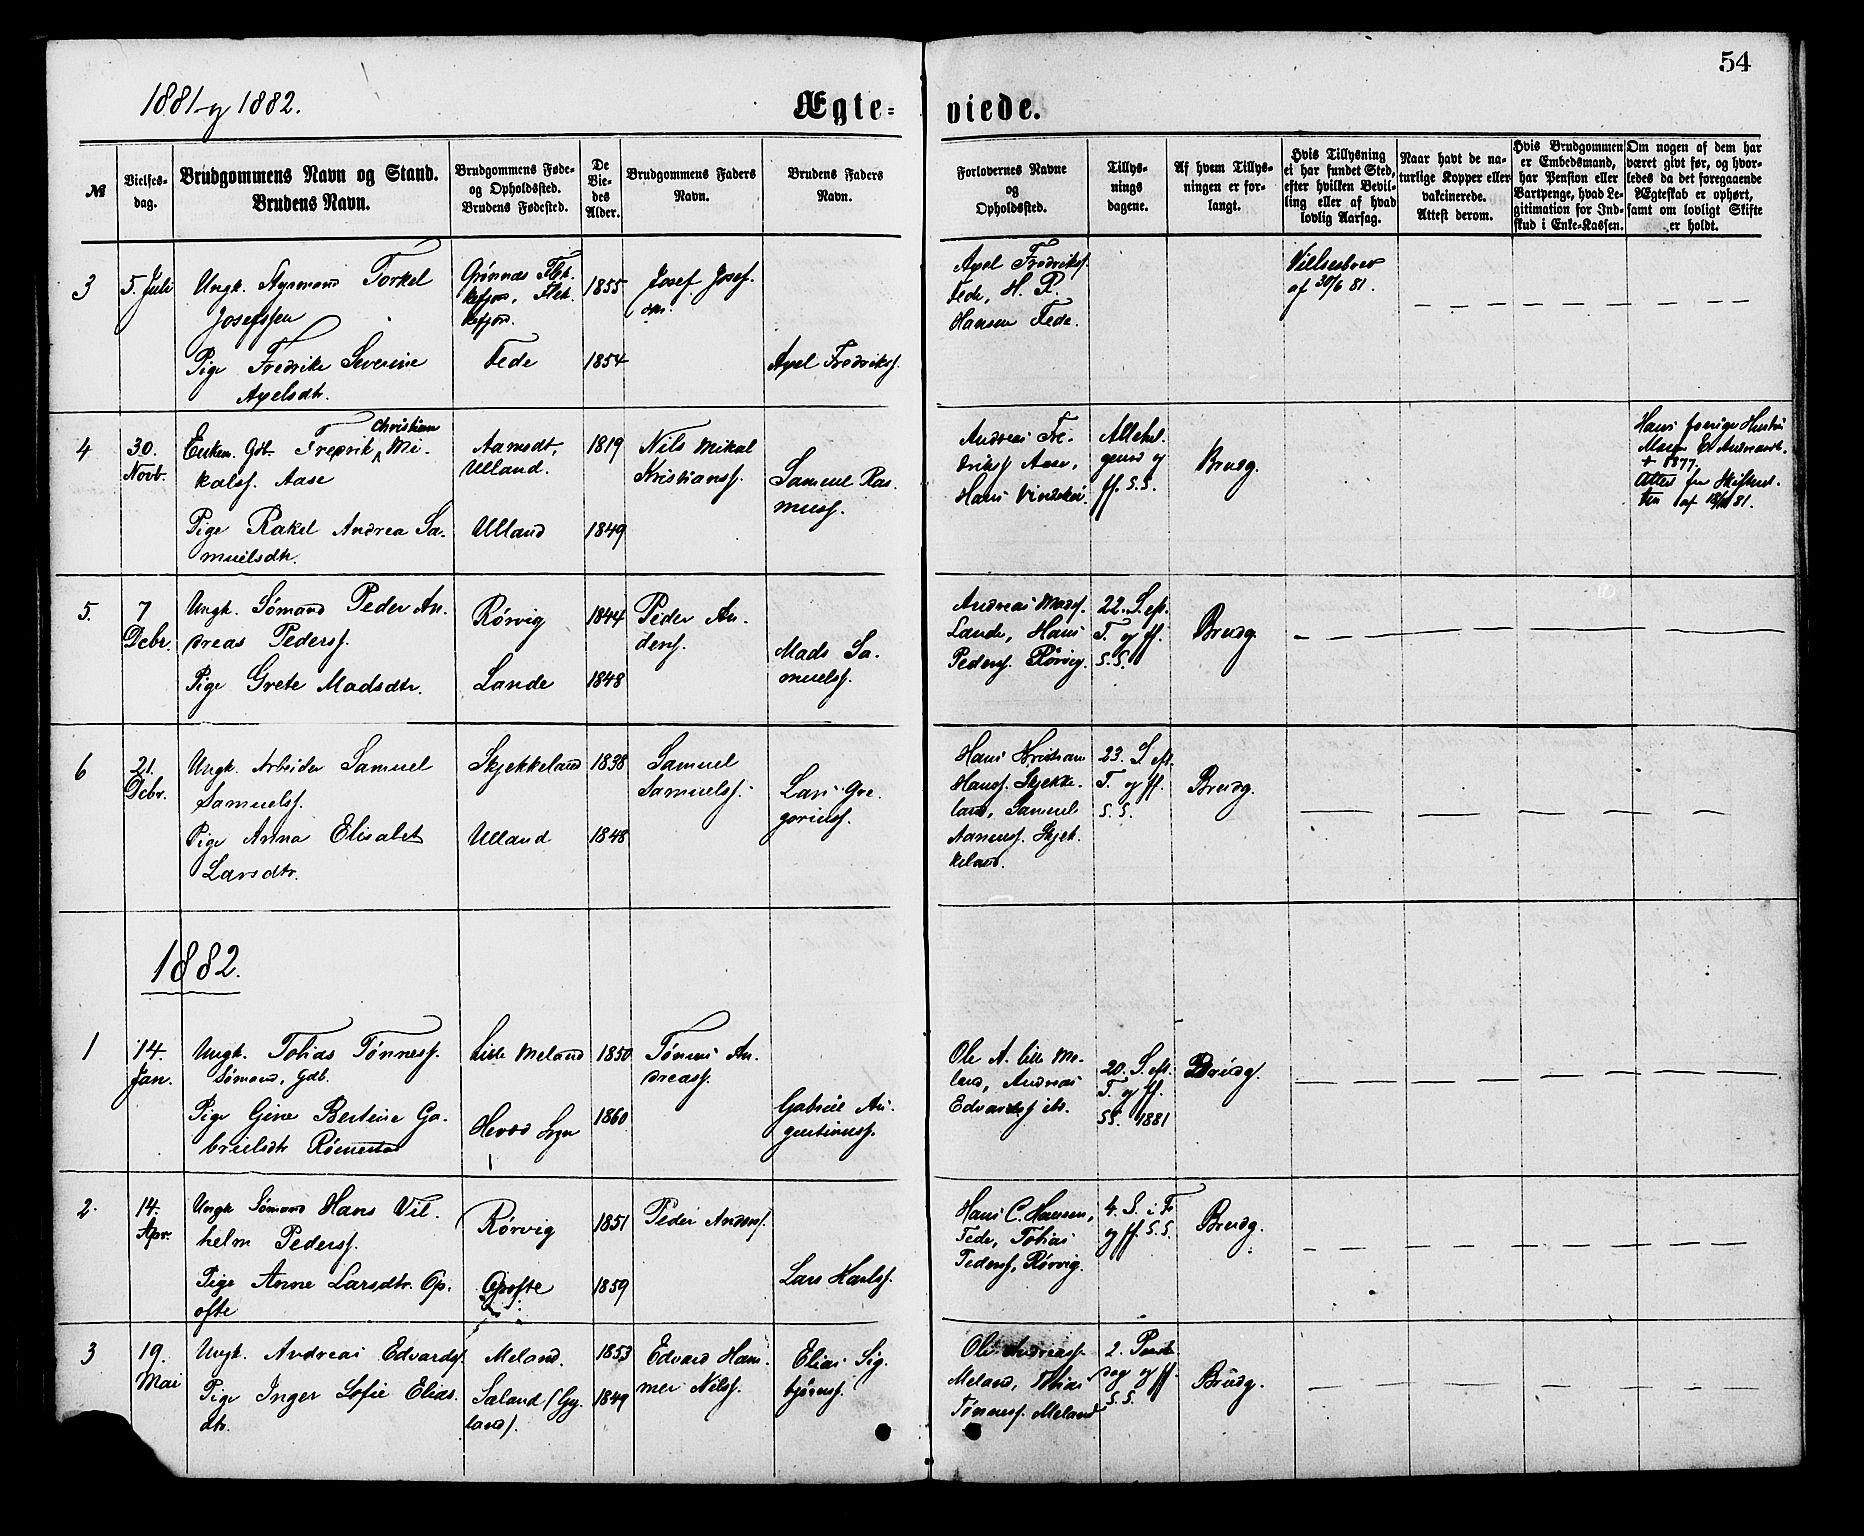 54
1881 og 1882.
Ægte-
viede.
№
Vielses-
dag.
Brudgommens Navn og Stand.
Brudens Navn.
Brudgommens Føde-
og Opholdssted.
Brudens Fødested.
De
Vie-
des
Alder.
Brudgommens Faders
Navn.
Brudens Faders
Navn.
Forlovernes Navne
og
Opholdssted.
Tillys-
nings
dagene.
Af hvem Tillys-
ningen er for-
langt.
Hvis Tillysning
ei har fundet Sted,
efter hvilken Bevil-
ling eller af hvad
lovlig Aarsag.
Naar havt de na-
turlige Kopper eller
vakcinerede.
Attest derom.
Hvis Brudgommen
er Embedsmand,
har Pension eller
Vartpenge, hvad Le-
gitimation for Ind-
skud i Enke-Kassen.
Om nogen af dem har
været givt før, og hvor-
ledes da det foregaaende
Ægteskab er ophørt,
samt om lovligt Skifte
er holdt.
3
5. Juli
Ungk. Styrmand Torkel
Josefssen
Pige Fredrike Severine
Axelsdtr.
Grønnæs Flek-
kefjord, Flek-
kefjord.
Fede
1855
1854
Josef Josef-
sen.
Axel Fredriks.
Axel Fredriks.
Fede, H. P.
Hansen Fede.
Vielsesbrev
af 30/6 81.
4
30.
Novb.
Enkem. Gdb. Fredrik Christian Mi-
kals. Aase
Pige Rakel Andrea Sa-
muelsdtr.
Aamodt,
Ulland.
Ulland
1819
1849
Nils Mikal
Kristians.
Samuel Ras-
muss.
Andreas Fre-
driks. Aase,
Hans
Allehel-
gensd og
ff. S.S.
Brudg.
Hans forrige Hustru
Maren
+ 1877,
Attest fra Skifteret-
ten af 81.
5.
7
Debr.
Ungk. Sømand Peder An-
dreas Peders.
Pige Grete Madsdtr.
Rørvig
Lande
1844
1848
Peder An-
ders.
Mads Sa-
muels.
Andreas Mads.
Lande, Hans
Peders. Rørvig.
22. S. eft.
T. og ff.
S.S.
Brudg.
6
21.
Debr.
Ungk. Arbeider Samuel
Samuels.
Pige Anna Elisabet
Larsdtr.
Skjekkeland
Ulland
1838
1848
Samuel
Samuels.
Lars Gre-
goriuss.
Hans Kristian
Hans. Skjekke-
land, Samuel
Aanens. Skjek-
keland.
23. S. eft.
T. og ff.
S.S.
Brudg.
1882.
1
14.
Jan.
Ungk. Tobias Tønness.
Sømand, Gdb.
Pige Gine Bertine Ga-
brielsdtr
Lille Meland
1850
1860
Tønnes An-
dreass.
Gabriel Au-
gustinuss.
Ole A. lille Me-
land, Andreas
Edvards. ibd.
20. S. eft.
T. og ff.
SS. 1881
Brudg.
2.
14.
Apr.
Ungk Sømand Hans Vil-
helm Peders.
Pige Anne Larsdtr. Op-
ofte
Rørvig
Opofte
1851
1859
Peder Anders.
Lars Karls.
Hans C. Hansen,
Fede, Tobias
Peders, Rørvig.
4. S. i F.
og ff. S.S.
Brudg.
3
19.
Mai
Ungk. Andreas Edvards.
Pige Inger Sofie Elias-
dtr.
Meland.
Saland (Gy-
land).
1853
1849
Edvard Ham-
mer Nils.
Elias Sig-
bjørns.
Ole Andreass.
Meland, Tobias
Tønness. Meland
2. Paaske-
dag og ff.
S.S.
Brudg.